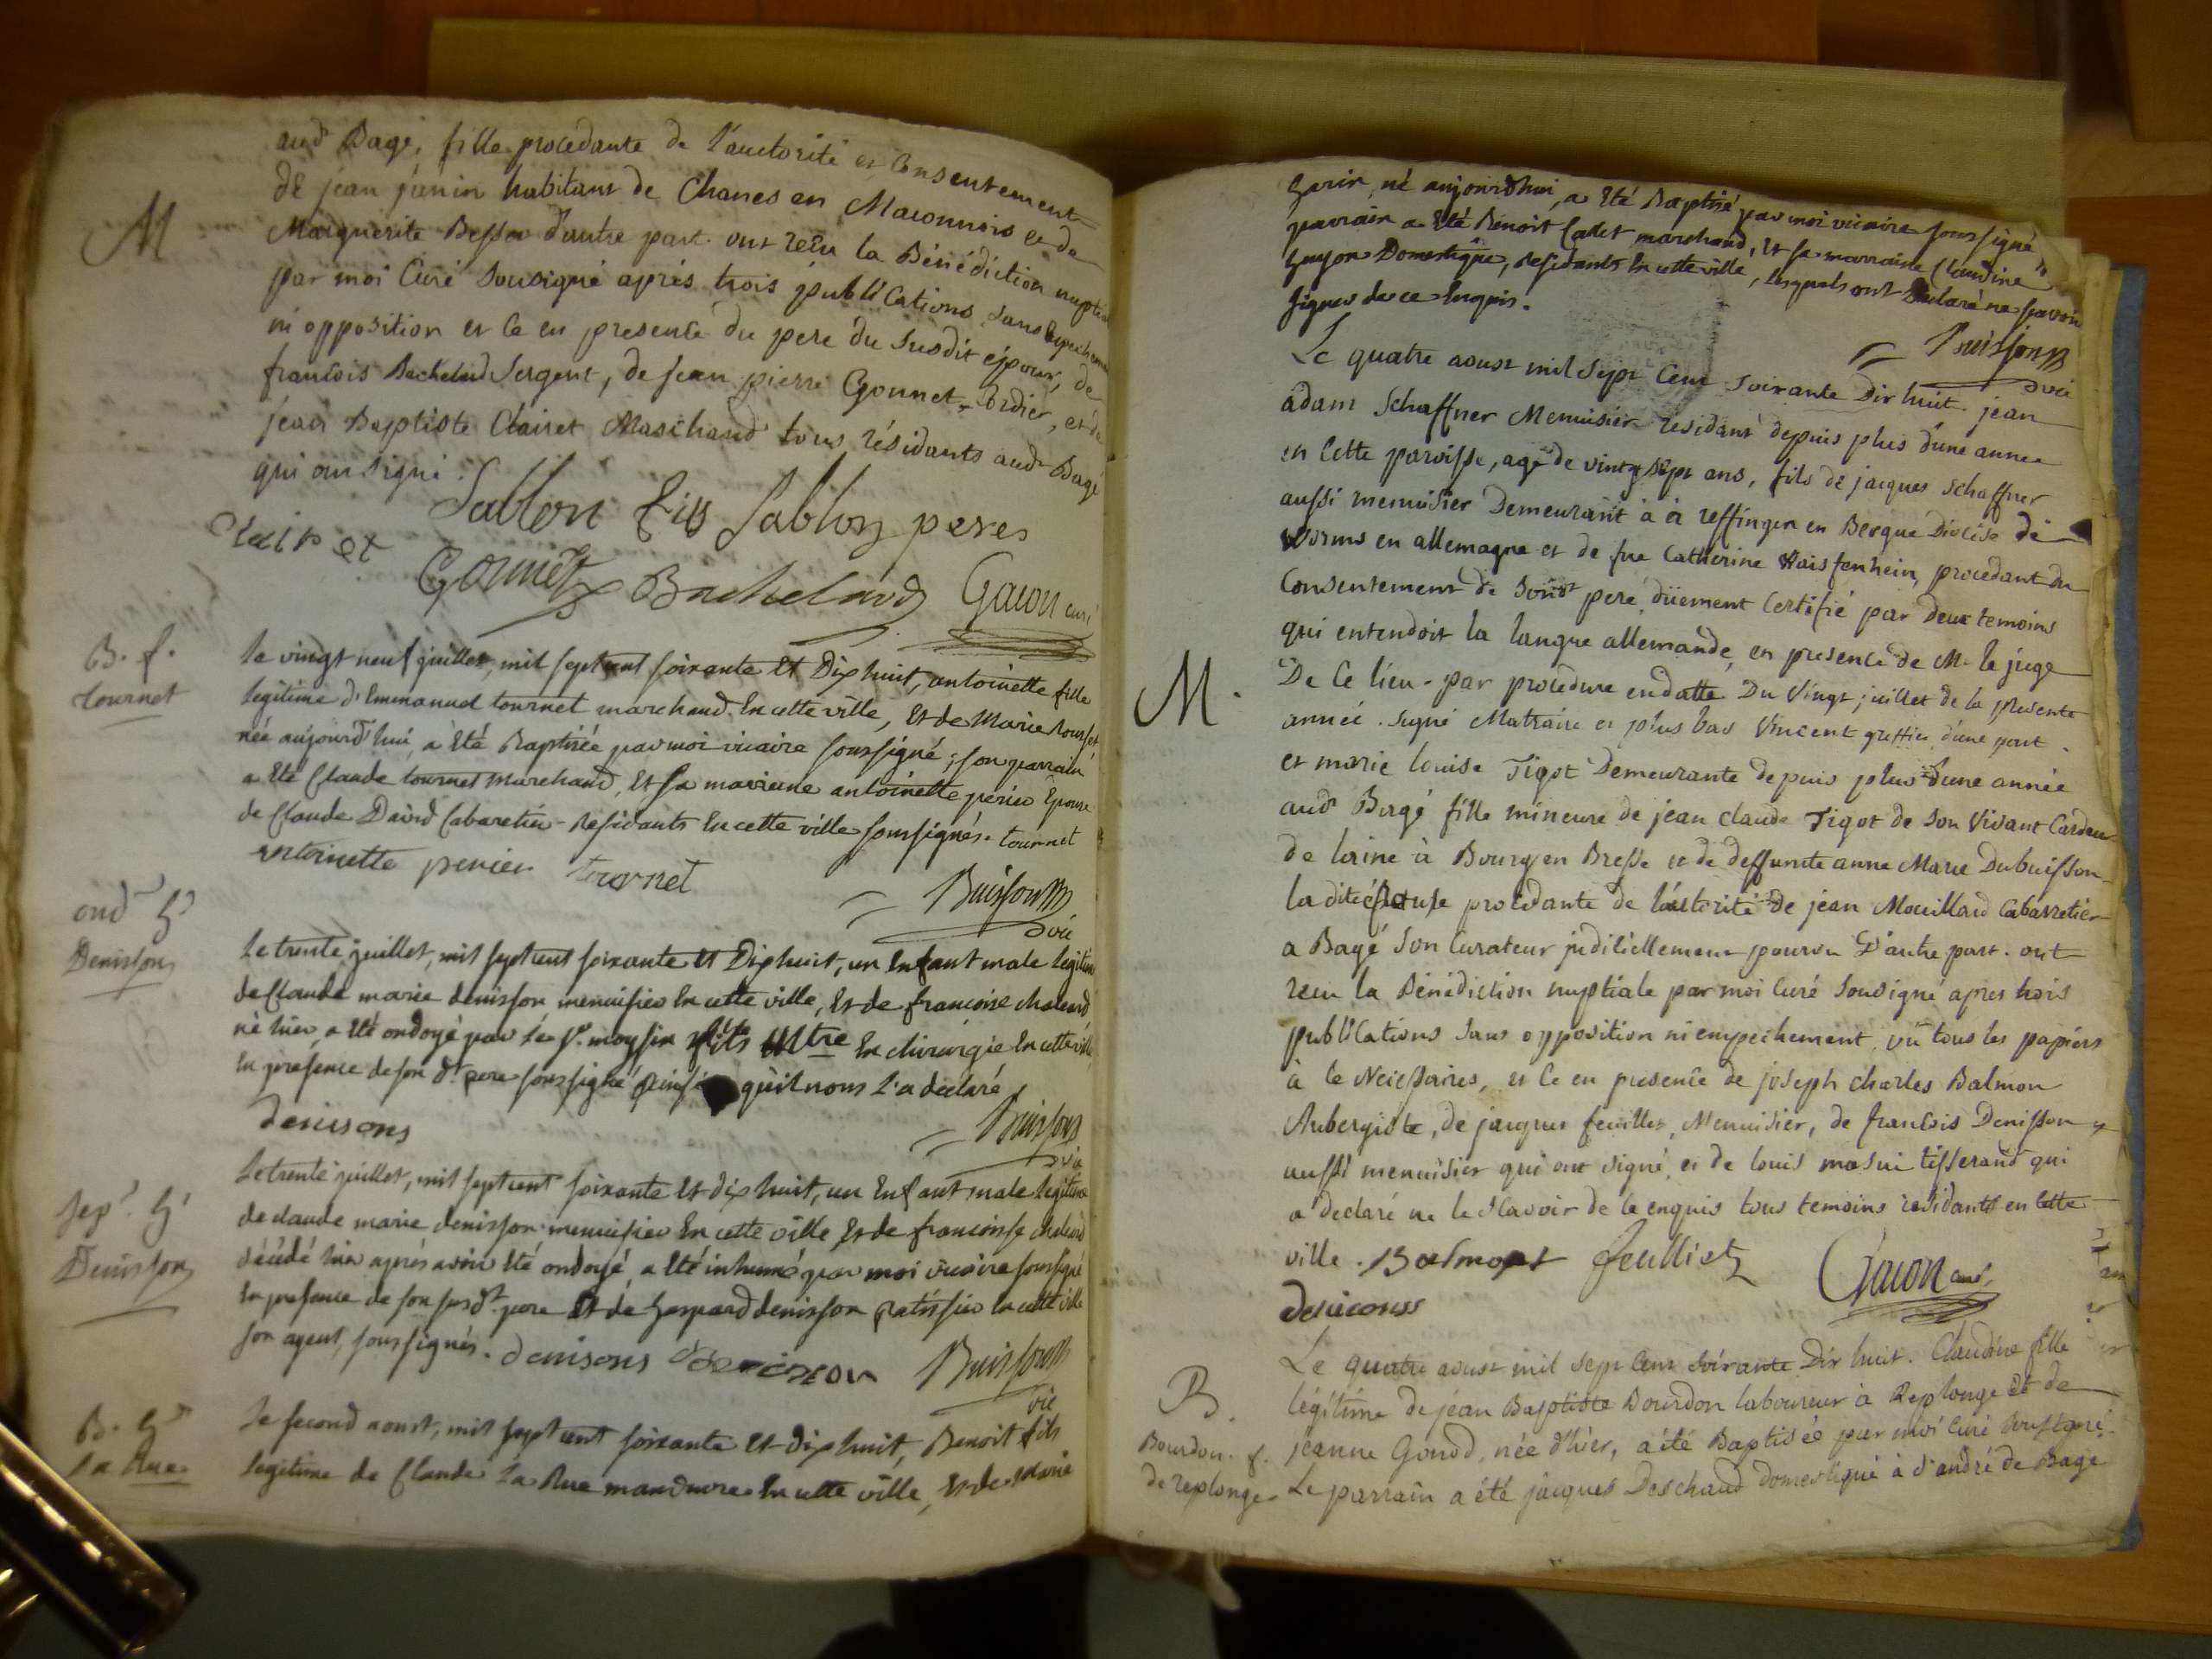 aud Bagé, fille procedante de l'auctorité et Consentement
de jean janin habitant de Chanes en Maconnois et de
M
Marguerite Besson d'autre part. ont reçu la Bénédiction nuptiale
par moi Curé Sousigné aprés trois publications sans
ni opposition et ce en presence du pere du Susdit époux, de
francois Bachelard Sergent, de jean pierre Gonnet, et de
jean Baptiste Clairet Marchand tous résidants aud Bagé
qui ont signé.
Sablon fils Sablon peres
Clairet Gonnet Bachelard Gacon curé
B. f.
tournet
le vingt neuf juillet, mil sept cent soixante et Dix huit, antoinette fille
legitime d'Emmanuel tournet marchand En cette ville, et de Marie
née aujourd'hui, a été Baptisée par moi vicaire soussigné; son parrain
a été Claude tournet Marchand, et sa maraine antoinette perier Epouse
de Claude David Cabaretier residants En cette ville soussignés. tournet
antoinette perier tournet
Buisson
vic
ond G
Denisson
le trente juillet, mil sept cent soixante et Dix huit, un Enfant male legitime
de Claude marie denisson menuisier En cette ville, et de francoise chalend
né hier, a été ondoyé par le Sr. moysin Mtre En chirurgie En cette ville
En presence de son dt. pere soussigné qu'il nous l'a declaré
denisons
Buisson
vic
Sep. G
Denisson
le trente juillet, mil sept cent soixante et dix huit, un Enfant male legitime
de claude marie denisson menuisier En cette ville et de francoise
décédé hier après avoir été ondoyé, a été inhumé par moi vicaire soussigné
En presence de son susdt. pere et de Gaspard denisson patissier En cette ville
son agent, soussignés. denisons denisson Buisson
vic
B. G
la Rue
le second aoust, mil sept cent soixante et dix huit, Benoit fils
legitime de Claude la Rue manoeuvre En cette ville, et de Marie
Garin, né aujourdhui, a été Baptisé par moi vicaire soussigné,
parrain a été Benoit Cadet marchand, et sa marraine Claudine
Guyon Domestique, residants En cette ville, lesquels ont declaré ne savoir
signer de ce Enquis.
Buisson
vic
Le quatre aoust mil Sept Cent Soixante Dix huit jean
adam Schaffner Menuisier residant depuis plus d'une annee
en Cette paroisse, agé de vingt Sept ans, fils de jacques Schaffner
aussi menuisier Demeurant à reffingen en Bergue Diocése de
Worms en allemagne et de fue Catherine Waisfenhein, procedant du
Consentement de Soudt pere, düement Certifié par deux temoins
qui entendoit la langue allemande, en presence de Mr le juge
M.
De Ce lieu. par procedure en datte Du Vingt juillet de la presente
année. signé Matraire et plus bas Vincent greffier d'une part.
et marie louise Tigot Demeurante depuis plus d'une année
aud Bagé fille mineure de jean claude Tigot de Son Vivant Cardeur
de laine à Bourg en Bresse et de deffunte anne Marie Dubuisson
la dite procedante de l'autorité de jean Mouillard Cabarretier
a Bagé Son Curateur juditiellement pourvu D'autre part. ont
recu la Bénédiction nuptiale par moi Curé Sousigné apres trois
publications Sans opposition ni empechement, vû tous les papiers
à ce Necessaires, et ce en presence de joseph charles Balmon
Aubergiste, de jacques feuillet, Menuisier, de francois Denisson
aussi menuisier qui ont signé, et de louis masui tisserand qui
a declaré ne le Scavoir de ce enquis tous temoins residants en cette
ville. Balmont feulliet
Gacon curé
denisons
B.
Bourdon. f.
de replonge
Le quatre aoust mil Sept Cent Soixante Dix huit. Claudine fille
légitime de jéan Baptiste Bourdon laboureur à Replonge et de
jéanne Gonod, née d'hier, a été Baptisée par moi Curé Sousigné.
Le parrain a été jacques Deschaud domestique à St andré de Bagé